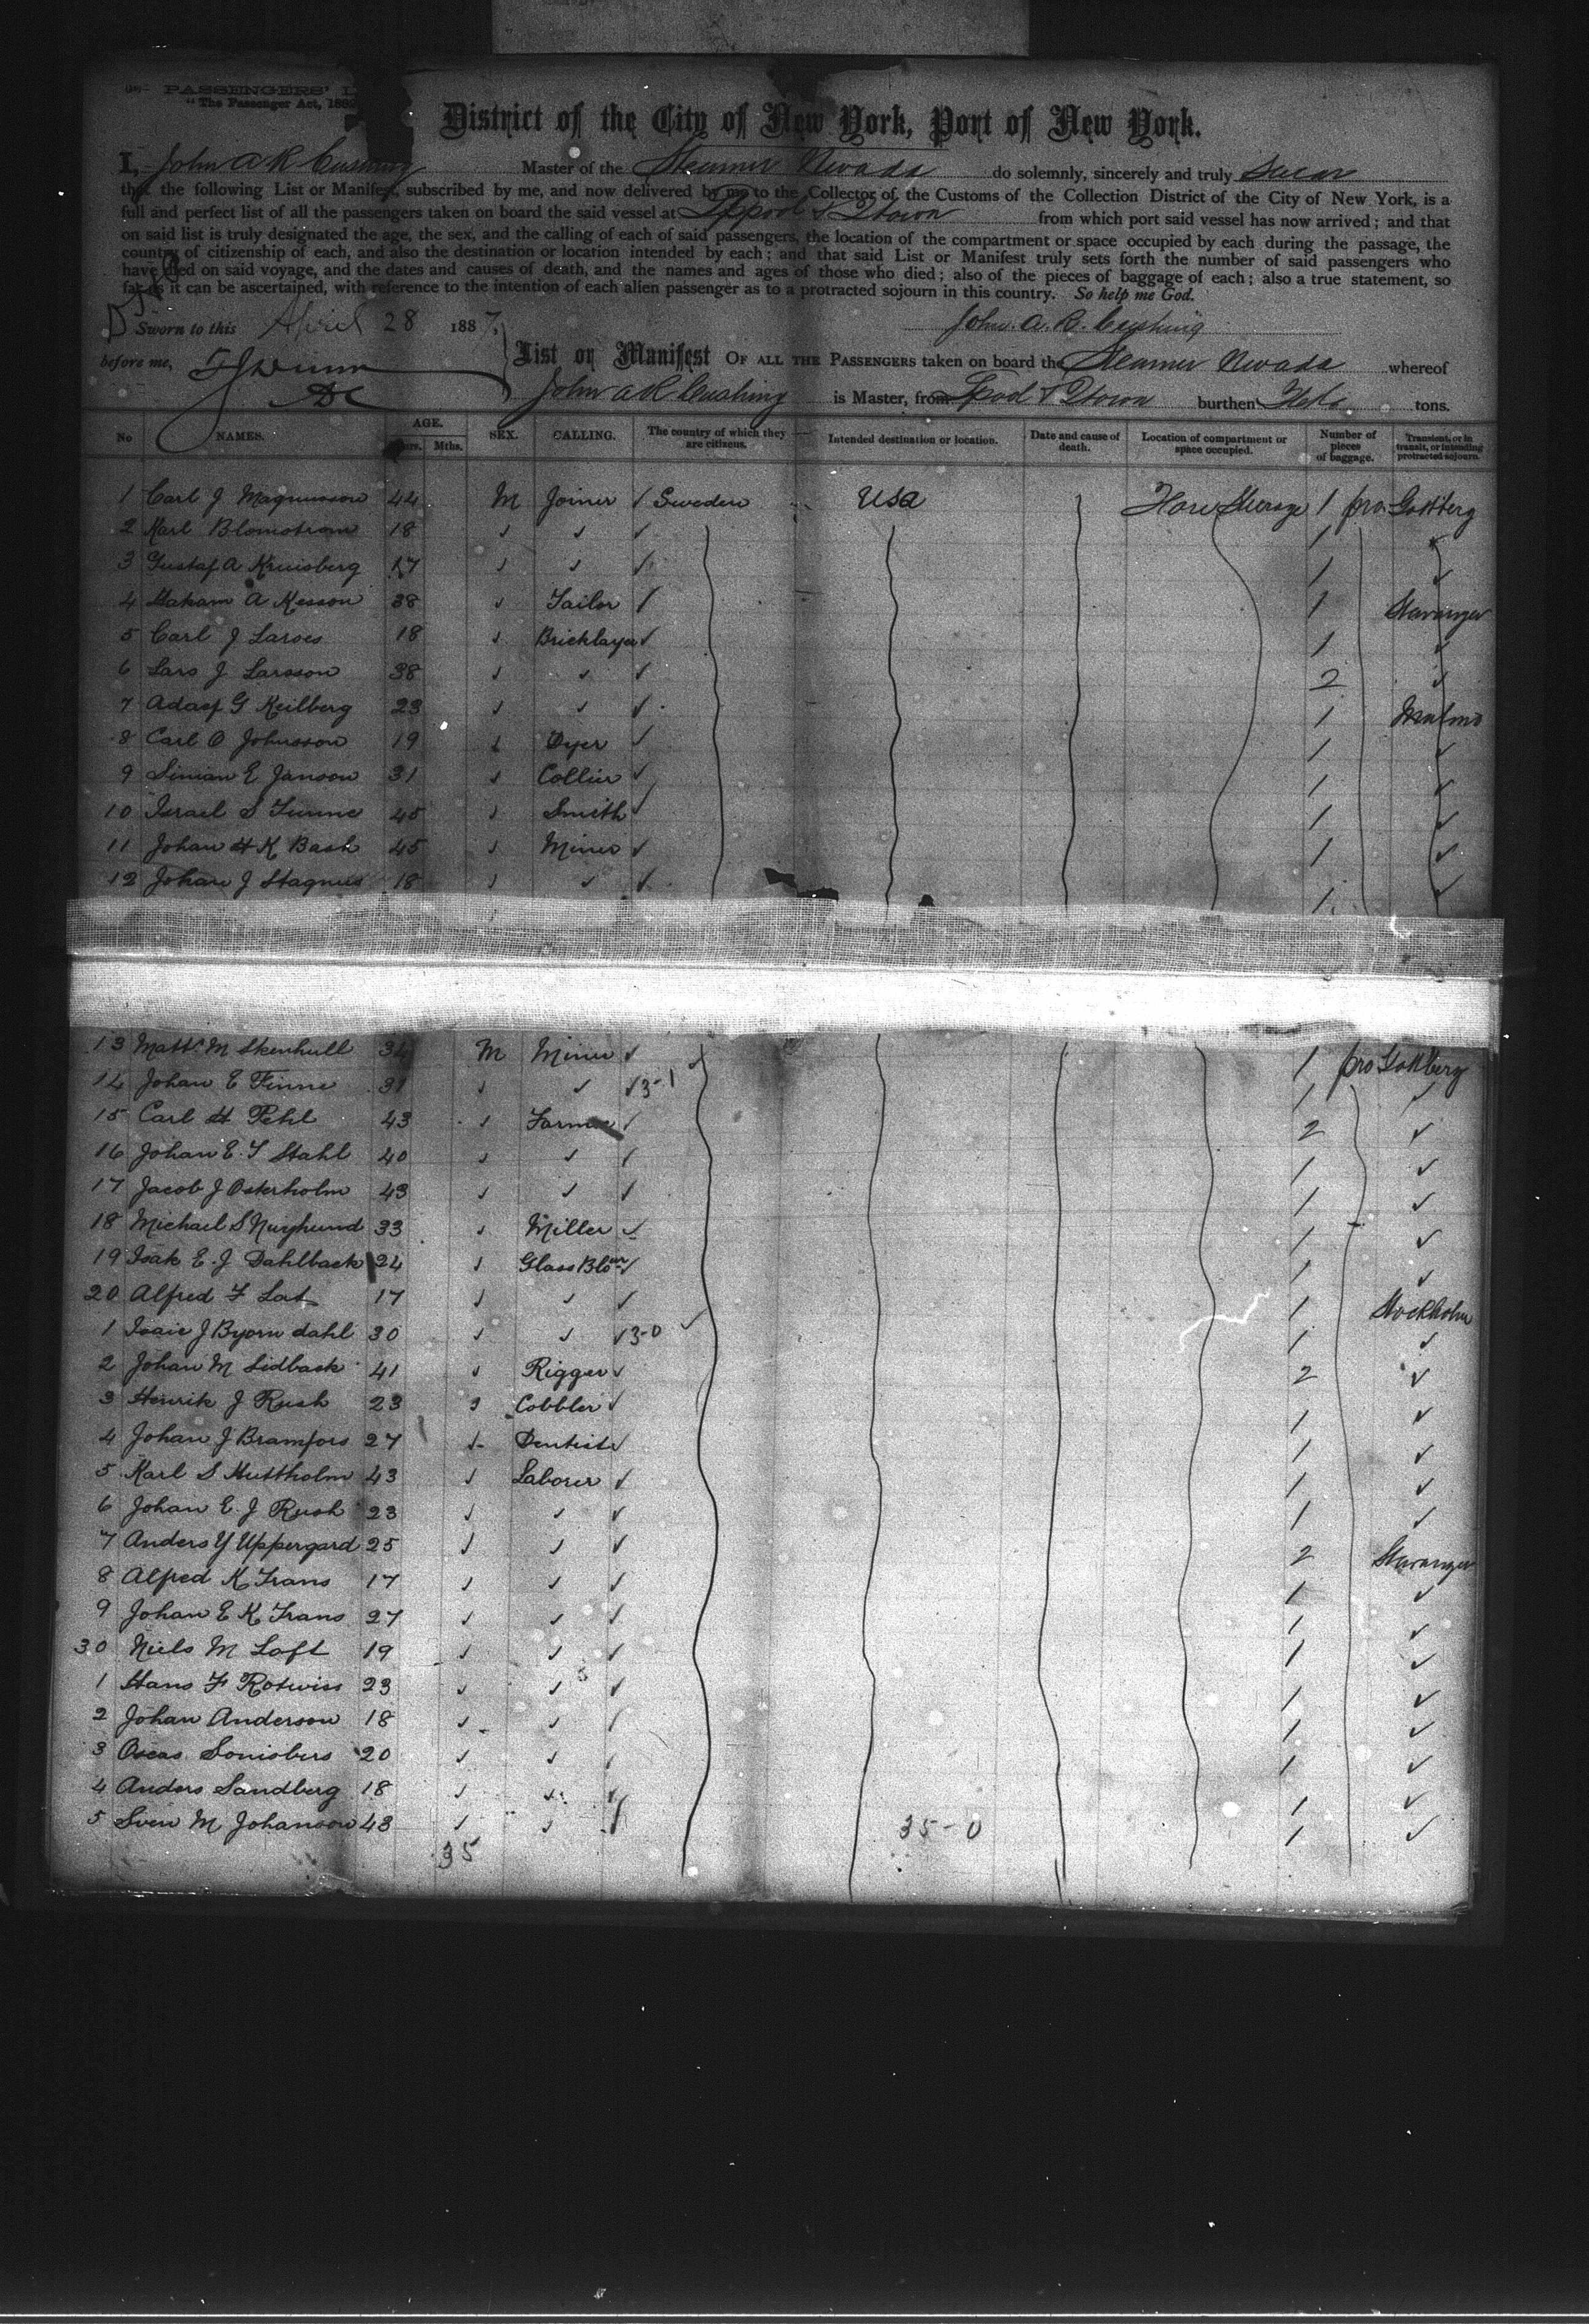 PASSENGERS'
"The Passenger Act, 1882
District of the City of New York, Port of New York.
I, John A R Cushing Master of the Steamer Nevada do solemnly, sincerely and truly swear
that the following List or Manifest, subscribed by me, and now delivered by me to the Collector of the Customs of the Collection District of the City of New York, is a
full and perfect list of all the passengers taken on board the said vessel at Lpool & Qtown from which port said vessel has now arrived; and that
on said list is truly designated the age, the sex, and the calling of each of said passengers, the location of the compartment or space occupied by each during the passage, the
country of citizenship of each, and also the destination or location intended by each; and that said List or Manifest truly sets forth the number of said passengers who
have died on said voyage, and the dates and causes of death, and the names and ages of those who died; also of the pieces of baggage of each; also a true statement, so
far as it can be ascertained, with reference to the intention of each alien passenger as to a protracted sojourn in this country. So help me God.
Sworn to this April 28 1887, John. A. R. Cushing
before me, List or Manifest OF ALL THE PASSENGERS taken on board the Steamer Nevada whereof
John A R Cushing is Master, from Lpool & Qtown burthen tons.
No NAMES. AGE. Years. Mths. SEX. CALLING. The country of which they are citizens. Intended destination or location. Date and cause of death. Location of compartment or space occupied. Number of pieces of baggage. Transient, or in transit, or intending protracted sojourn.
1 Carl J Magnusson 44 M Joiner / Sweden USA Steerage 1 pro Gottberg
2 Karl Blomstrom 18 ✓ ✓ ✓ 1 ✓
3 Gustaf A 17 ✓ ✓ ✓ 1 ✓
4 Hakam A Kesson 38 ✓ Tailor / 1 Stavanger
5 Carl J Larses 18 ✓ Bricklayer ✓ 1 ✓
6 Lars J Larsson 38 ✓ ✓ ✓ 2 ✓
7 Adasf G Keilberg 23 ✓ ✓ ✓ 1 Malmo
8 Carl O Johnsson 19 ✓ Dyer ✓ 1 ✓
9 Simian E Janson 31 ✓ Collier ✓ 1 ✓
10 Israel S Finne 45 ✓ Smith ✓ 1 ✓
11 Johan H K Bash 45 ✓ Miner ✓ 1 ✓
12 Johan J Stagnus 18 ✓ ✓ ✓ 1 ✓
13 Matts M Skenhull 34 M Miner ✓ 1 pro Gottberg
14 Johan E Finne 31 ✓ ✓ ✓ 3-1 1 ✓
15 Carl H Pehl 43 ✓ Farmer / 2 ✓
16 Johan E. T Stahl 40 ✓ ✓ / 1 ✓
17 Jacob J Osterholm 43 ✓ ✓ ✓ 1 ✓
18 Michael S 33 ✓ Miller ✓ 1 ✓
19 Isak E. J Dahlback 24 ✓ Glass Blowr ✓ 1 ✓
20 Alfred F Lat 17 ✓ ✓ ✓ 1 Stockholm
1 Isaic J Byorn dahl 30 ✓ ✓ ✓ 3-0 ✓ 1 ✓
2 Johan M Sidback 41 ✓ Rigger ✓ 2 ✓
3 Henrik J Rush 23 ✓ Cobbler ✓ 1 ✓
4 Johan J Bramfors 27 ✓ Dentist ✓ 1 ✓
5 Karl S Huttholm 43 ✓ Laborer ✓ 1 ✓
6 Johan E. J Rush 23 ✓ ✓ ✓ 1 ✓
7 Anders Y Uppergard 25 ✓ ✓ ✓ 2 Stavanger
8 Alfred K Frans 17 ✓ ✓ ✓ 1 ✓
9 Johan E K Frans 27 ✓ ✓ ✓ 1 ✓
30 Niels M Loft 19 ✓ ✓ ✓ 1 ✓
1 Hans F Rotwiss 23 ✓ ✓ ✓ 1 ✓
2 Johan Anderson 18 ✓ ✓ / 1 ✓
3 Oscas Sonisbers 20 ✓ ✓ / 1 ✓
4 Anders Sandberg 18 ✓ ✓ ✓ 1 ✓
5 Sven M Johanson 43 ✓ ✓ / 1 ✓
35 35-0